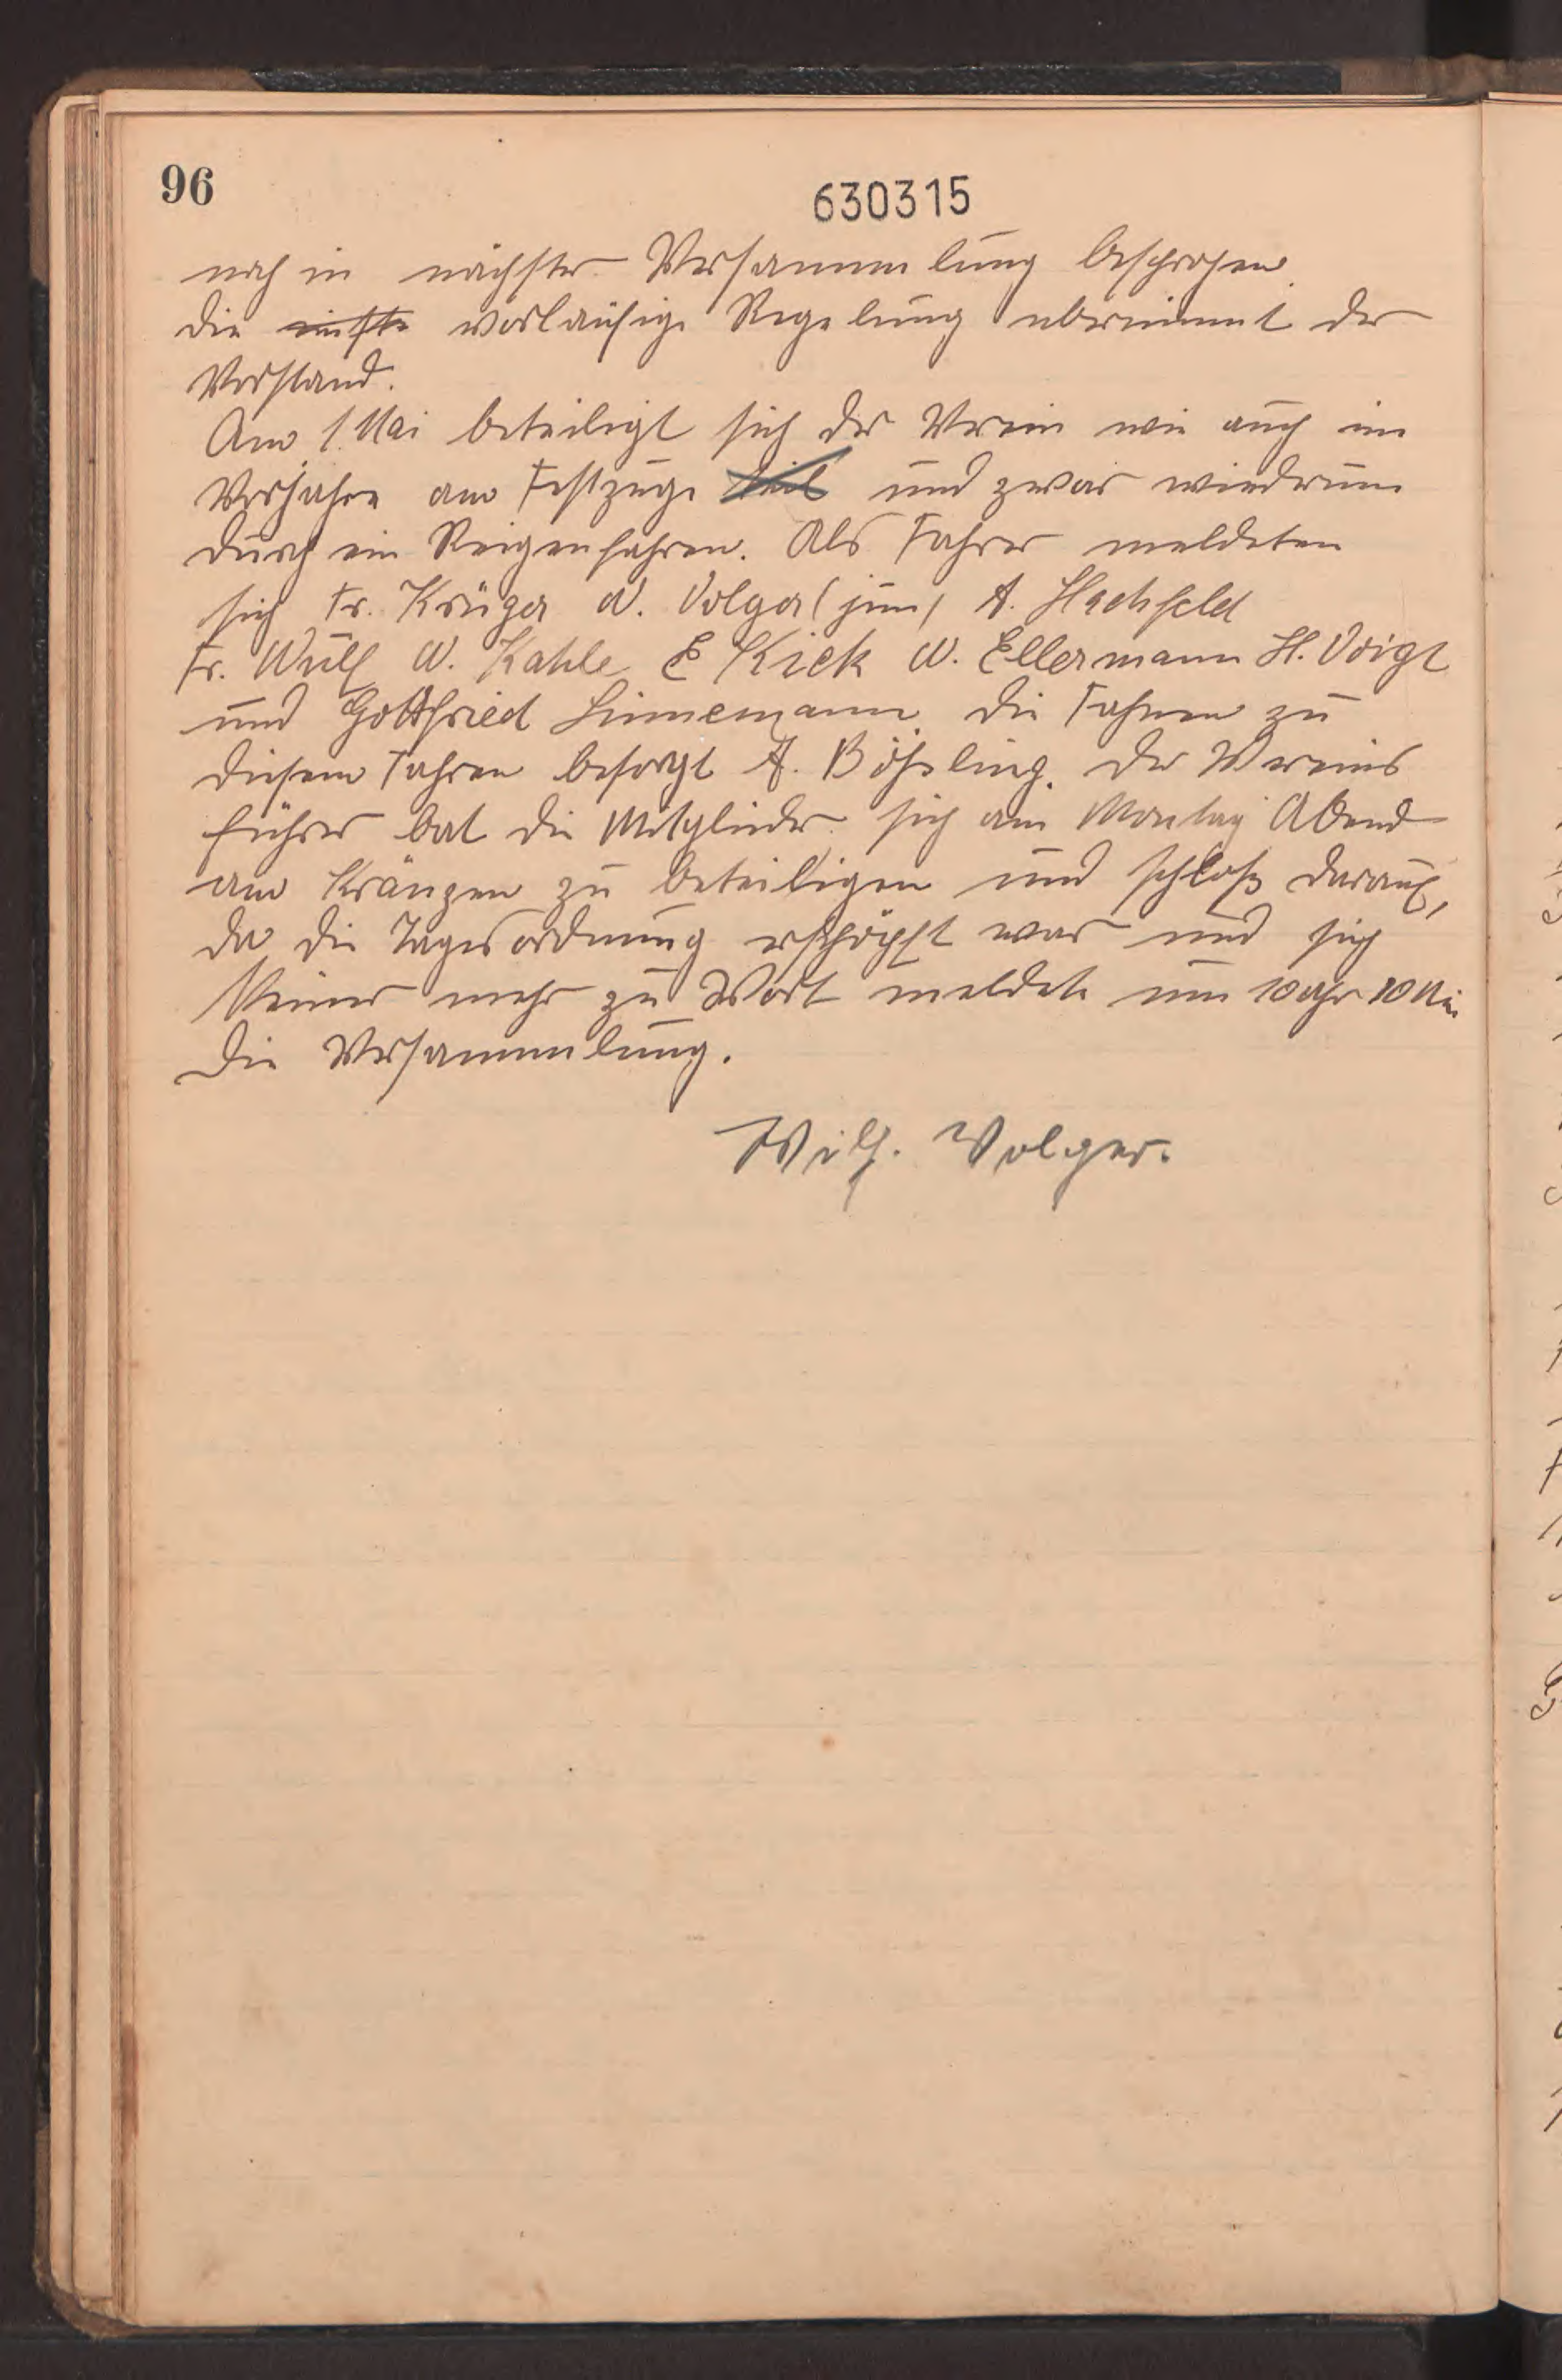 96
630315
noch in nächster Versammlung besprochen.
Die vorläufige Regelung übernimmt der
Vorstand.
Am 1. Mai beteiligt sich der Verein wie auch im
Vorjahre am Festzuge teil und zwar wiedrum
durch ein Reigenfahren. Als Fahrer meldeten
sich Fr. Krüger W. Volger (jun) A. Hachfeld
Fr. Wulf W. Kahle E Kick W. Ellermann H. Voigt
und Gottfried Linnemann die Fahnen zu
diesem Fahren besorgt A. Bößling. Der Vereins
führer bat die Mitglieder sich am Montag Abend
am Kränzen zu beteiligen und schloß darauf,
da die Tagesordnung erschöpft war und sich
Keiner mehr zu Wort meldete um 10 Uhr 10 Min
die Versammlung.
Wilh. Volger.